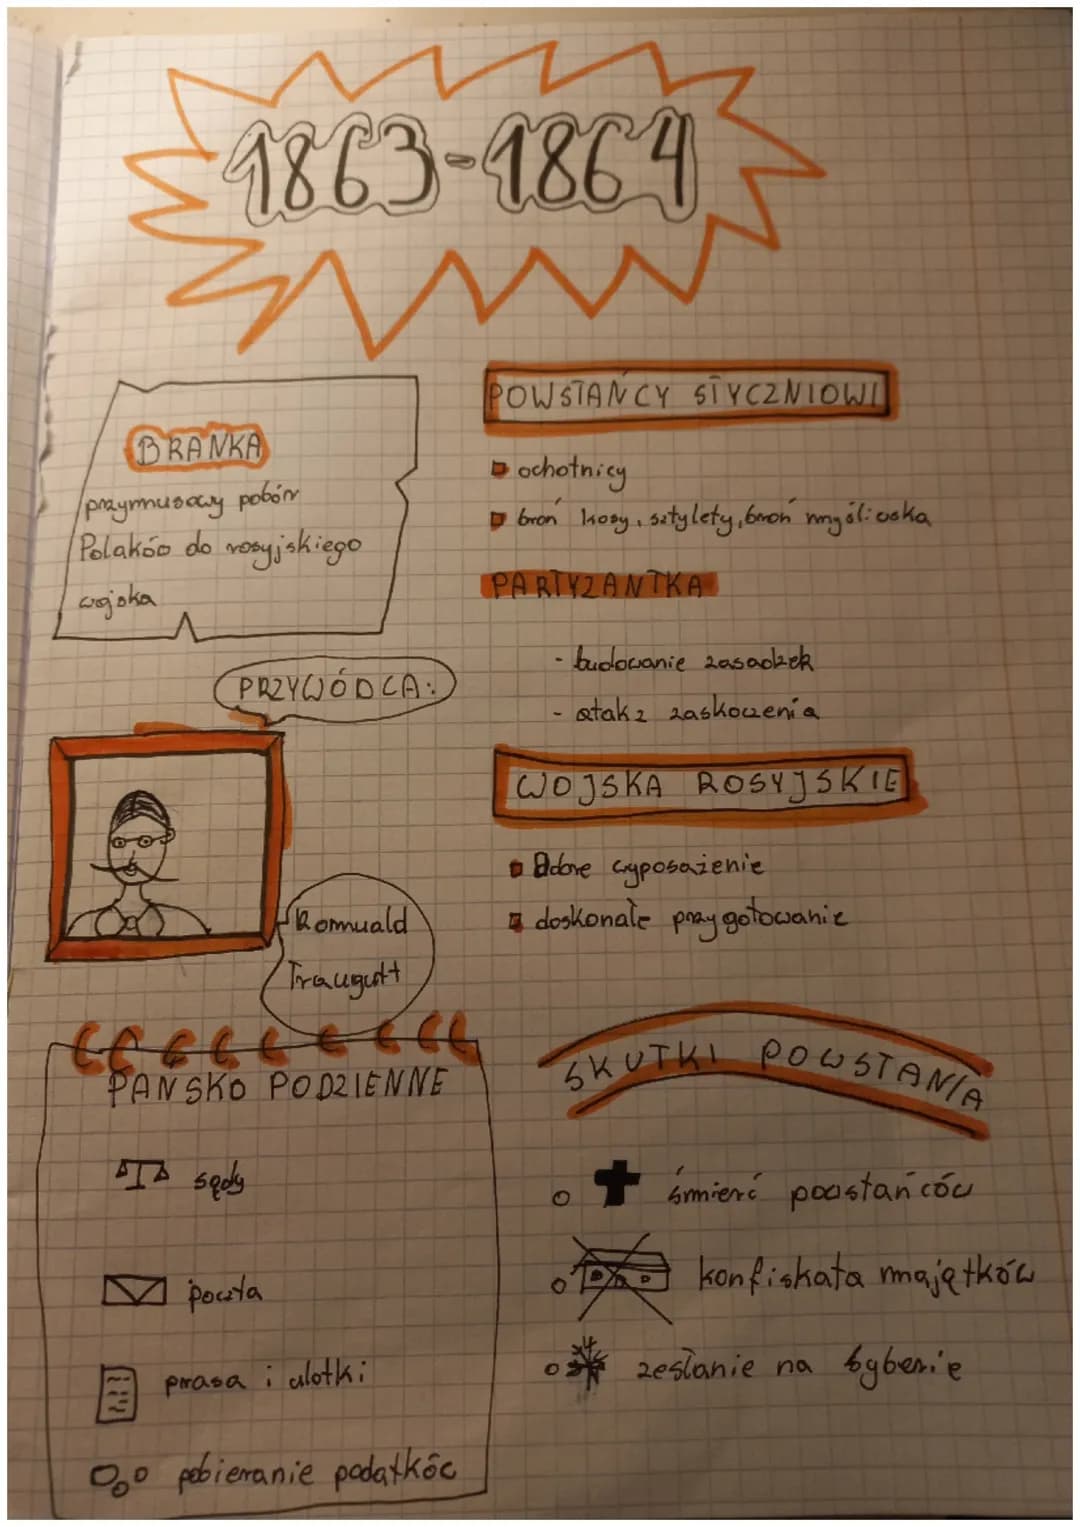 1863-1864
BRANKA
przymusowy pobór
Polaków do rosyjskiego
wojska
POWSTAŃCY STYCZNIOWI
ochotnicy
broń kosy, sztylety, broń myśliwska
PARTYZANTKA
- budowanie zasadzek
- atak z zaskoczenia
PRZYWÓDCA:
Romuald
Traugutt
WOJSKA ROSYJSKIE
dobre wyposażenie
doskonałe przygotowanie
PAŃSKO PODZIENNE
sądy
poczta
prasa i ulotki
pobieranie podatków
SKUTKI POWSTANIA
śmierć powstańców
konfiskata majątków
zesłanie na Syberie